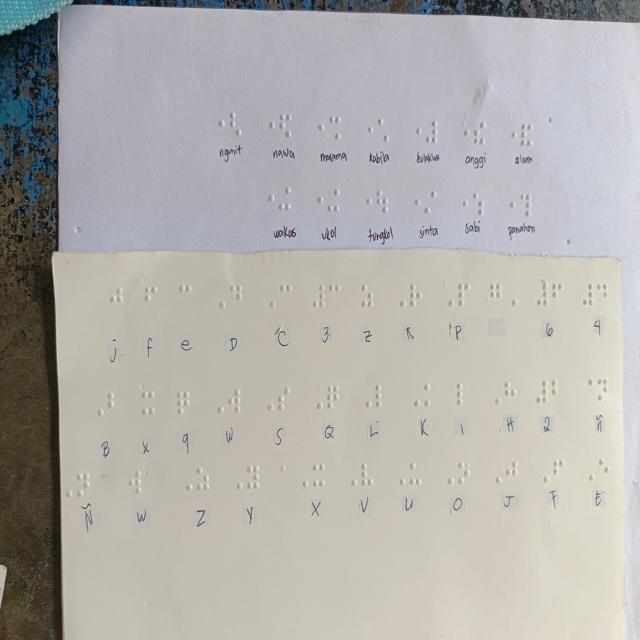 ngunit nawa marama kabila bulaklak anggi alam
wakas ukol tungkol sinta sabi panahon
j f e D C 3 Z R P 6 4
B x q W S Q L K 1 H 2 ñ
Ñ W Z Y X V U O J F t